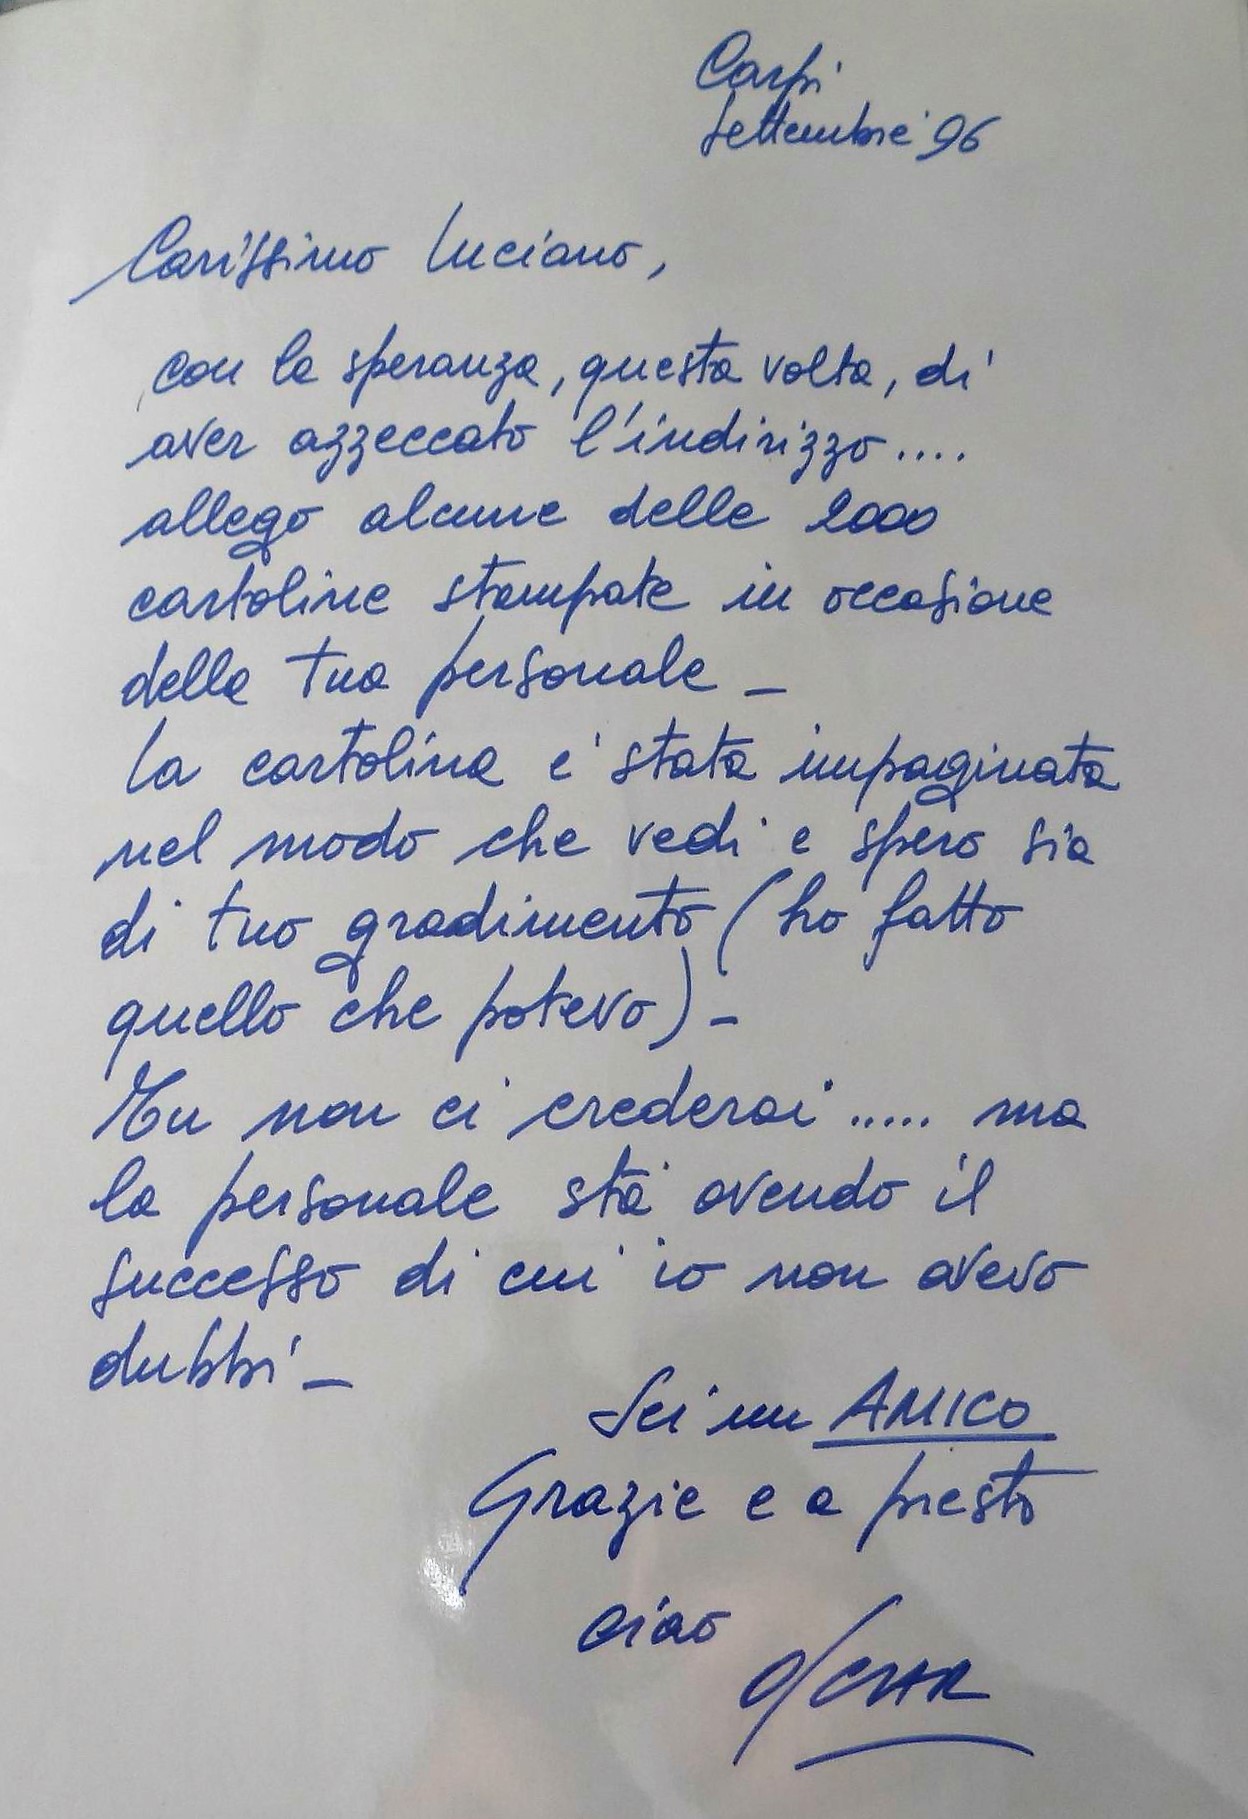 Carpi
Settembre '96
Carissimo Luciano,
con la speranza, questa volta, di
aver azzeccato l'indirizzo....
allego alcune delle 2000
cartoline stampate in occasione
della tua personale -
La cartolina e' stata impaginata
nel modo che vedi e spero sia
di tuo gradimento (ho fatto
quello che potevo) -
Tu non ci crederai ..... ma
la personale sta' avendo il
successo di cui io non avevo
dubbi -
Sei un AMICO
Grazie e a presto
ciao
OSCAR